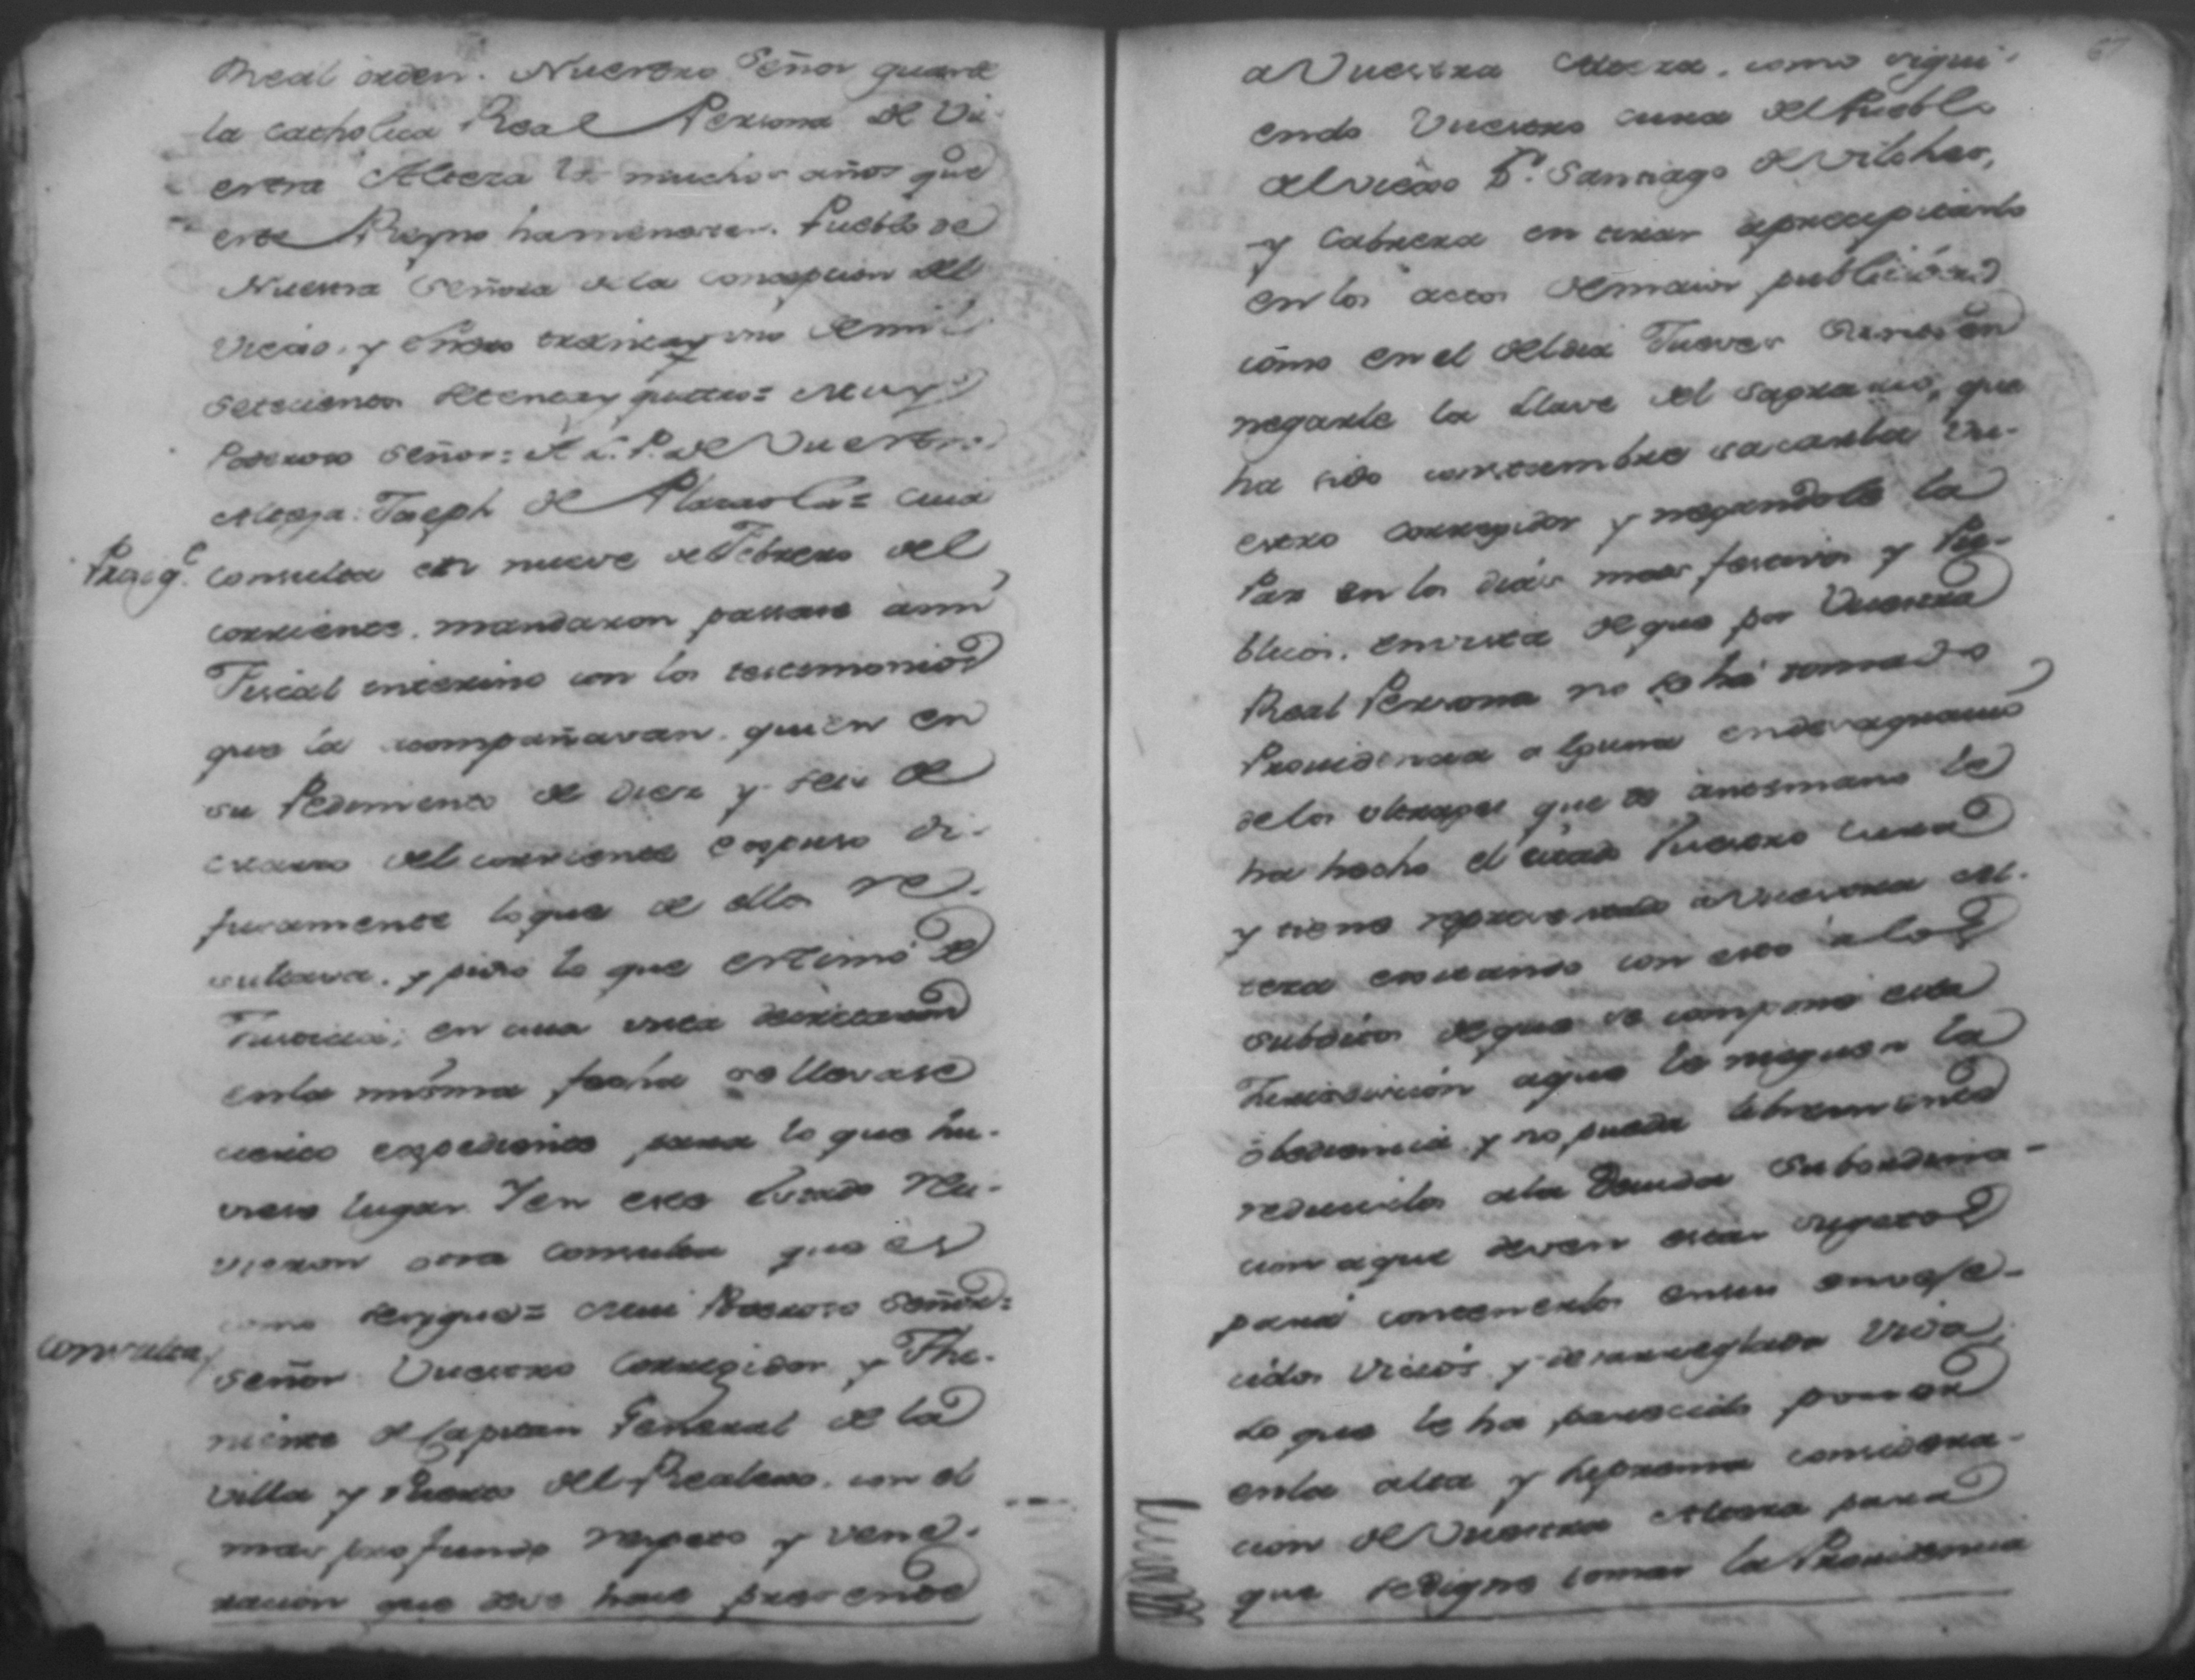 Real orden. Nuestro Señor guarde
la catholica Real Persona de Vu-
estra Alteza los muchos años que
este Reyno ha menester. Pueblo de
Nuestra Señora de la Concepcion del
Viejo, y Enero treinta y uno de mil
setecientos setenta y quatro= Muy
Poderoso Señor= A L. P. de Vuestra
Alteza. Joseph de Plazaola= Cuia
Prosig.e consulta en nueve de Febrero del
corriente, mandaron passase a mi
Fiscal interino con los testimonios
que la acompañavan, quien en
su Pedimento de diez y seis de
del corriente expuso di-
fusamente lo que de ellos re-
sultava, y pidio lo que estimó de
Justicia; en cuia vista decretaron
en la misma fecha se llevase
expediente para lo que hu-
viese lugar. Y en este Estado reci-
vieron otra consulta que es
como se sigue= Mui Poderoso Señor=
Consulta, Señor Vuestro Corregidor y The-
niente de Capitan General de la
Villa y Puerto del Realexo, con el
mas profundo respeto y vene-
racion que deve hace presente
67
a Vuestra Alteza, como sigui-
endo Vuestro cura del Pueblo
del viejo Dn. Santiago de Vilches,
y Cabrera en tirar a precipitarlo
en los actos de maior publicidad
como en el del dia Jueves Santo en
negarle la Llave del Sagrario, que
ha sido constumbre sacarla Vu-
estro corregidor y negandole la
Paz en los dias mas festivos y Pu-
blicos. en vista de que por Vuestra
Real Persona no se ha tomado
Providencia alguna en desagravio
de los ultrages que de antemano le
ha hecho el citado Vuestro Cura
y tiene representado a Vuestra Al-
teza con esto a los
subditos de que se compone esta
Jurisdiccion a que le nieguen la
obediencia y no pueda libremente
reducirlos a la Devida Subordina-
cion a que deven estar sugetos
para contenerlos en sus enveje-
cidos vicios y desarreglada Vida
Lo que le ha parecido poner
en la alta y suprema considera-
cion de Vuestra Alteza para
que se digne tomar la Providencia